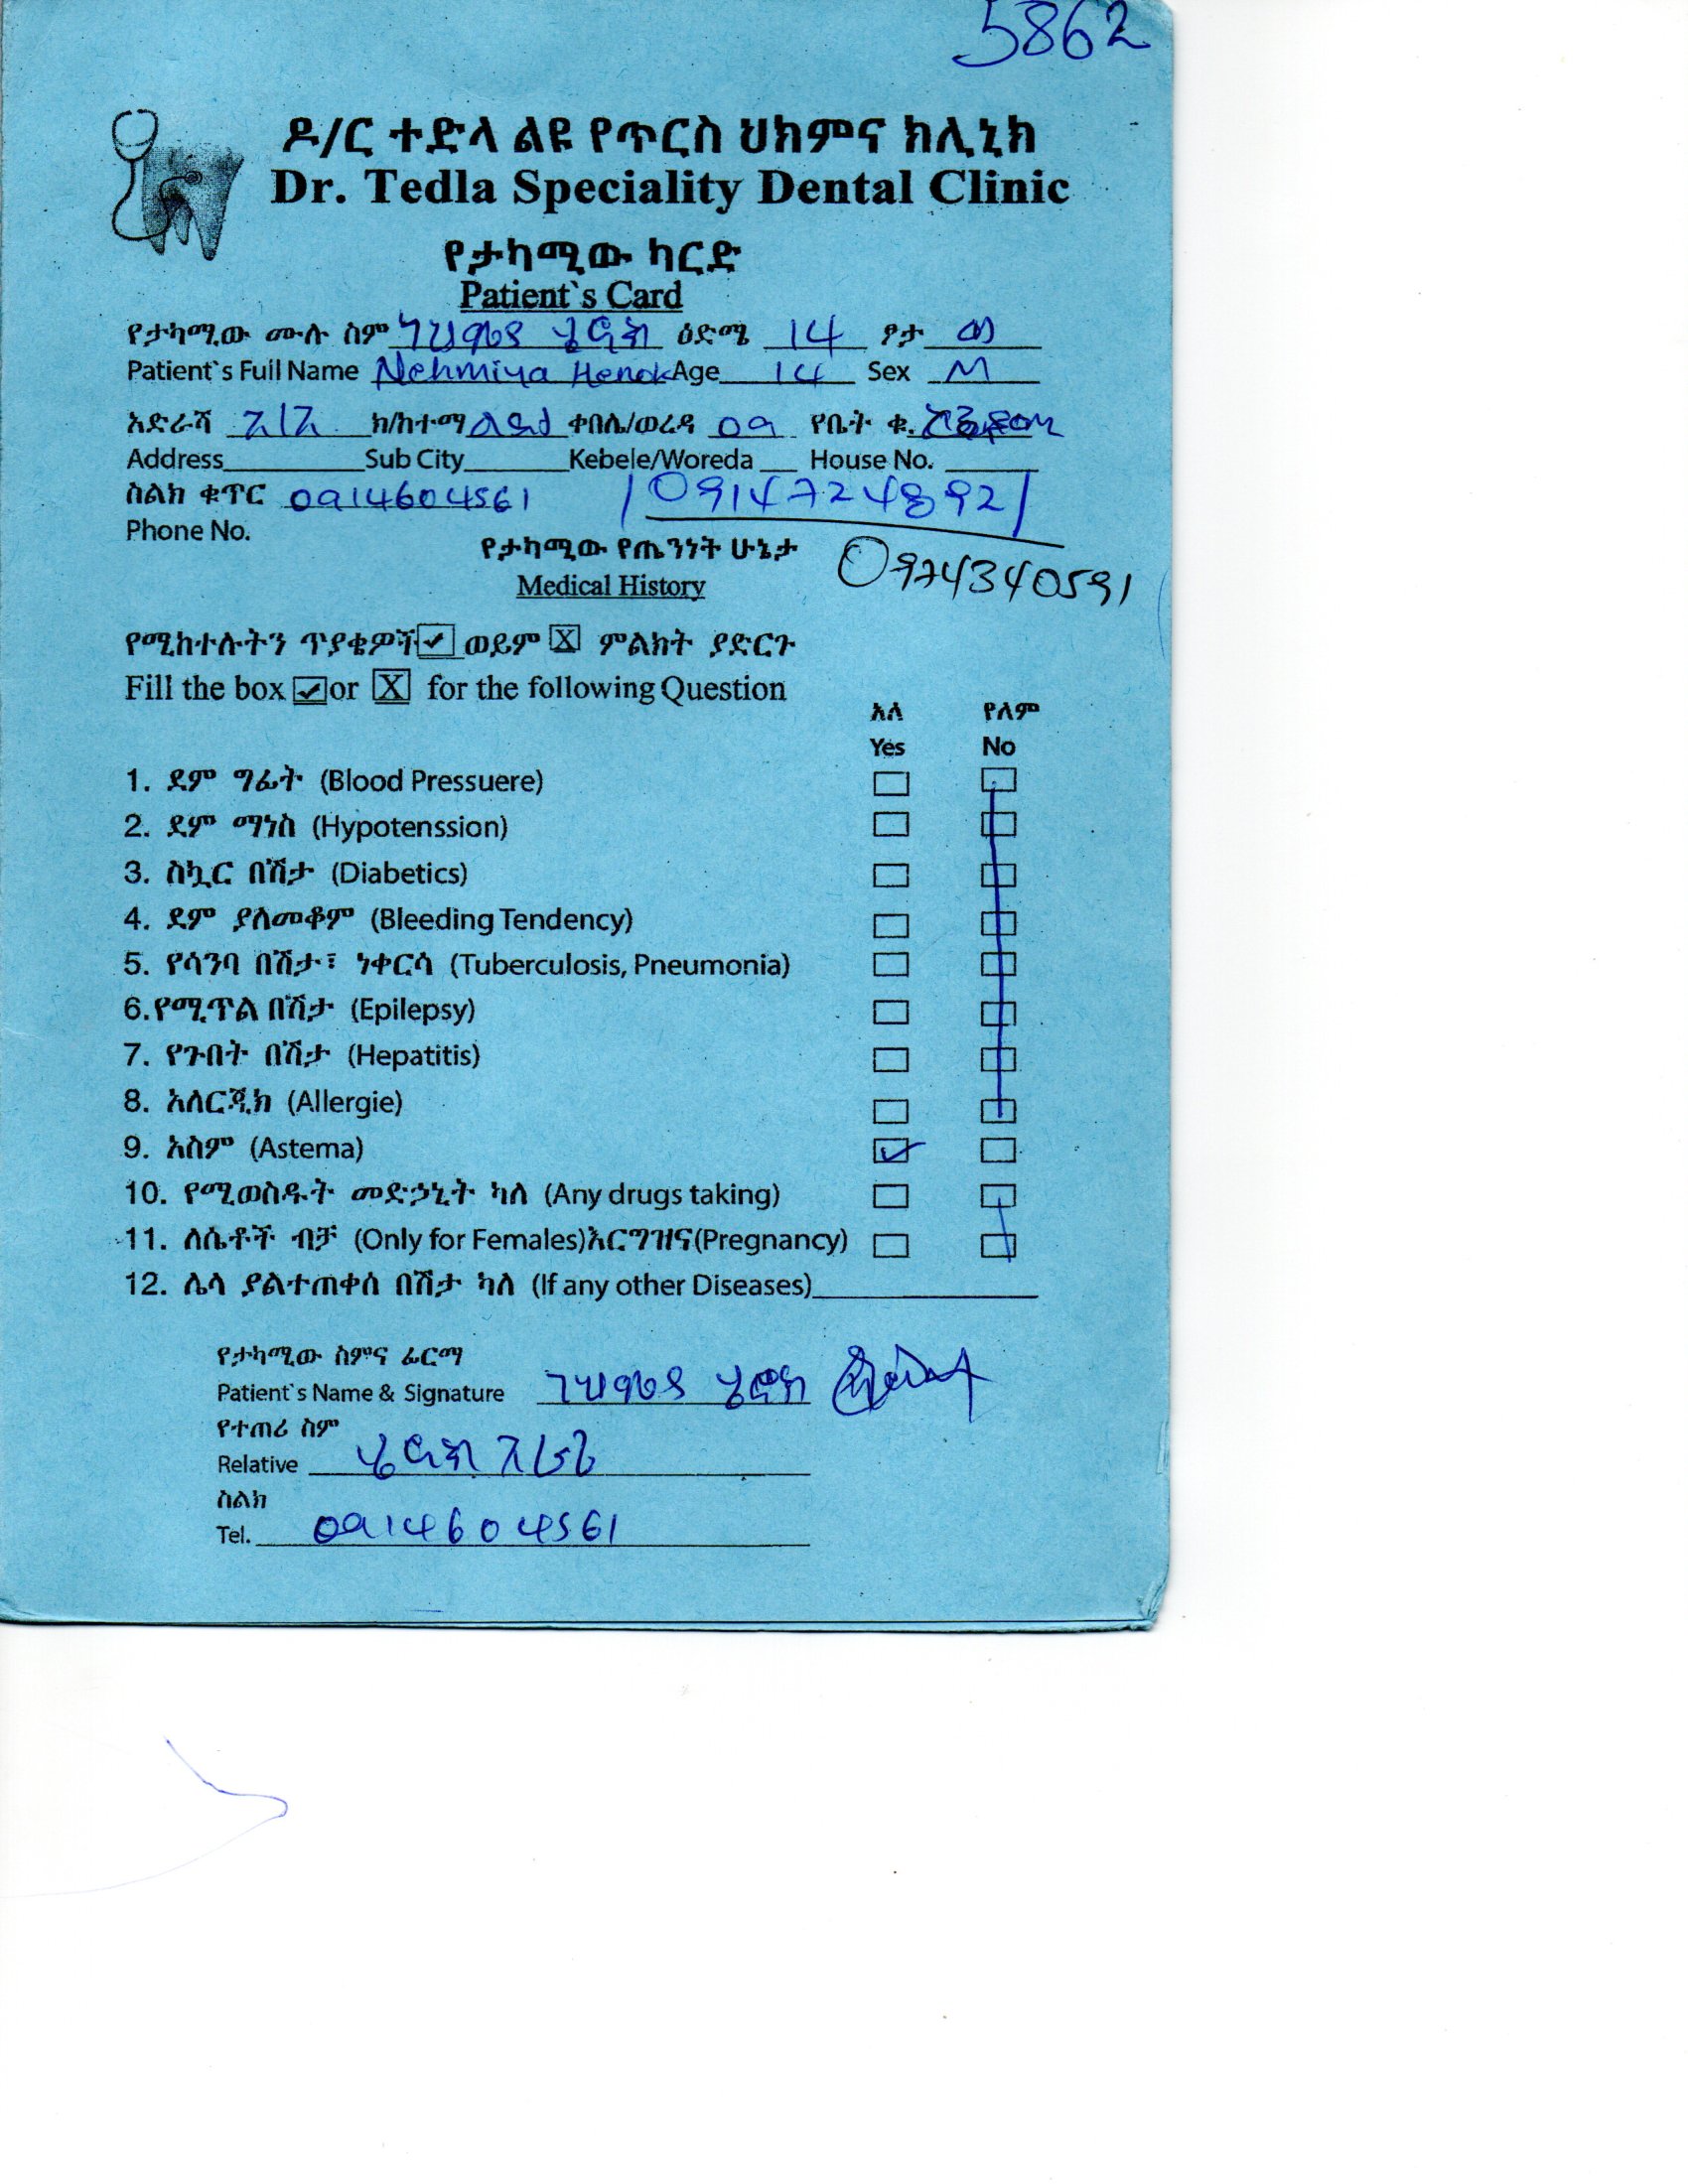 5862
ዶ/ር ተድላ ልዩ የጥርስ ህክምና ክሊኒክ
Dr. Tedla Speciality Dental Clinic
የታካሚው ካርድ
Patient`s Card
የታካሚው ሙሉ ስም ነህሚያ ሄኖክ ዕድሜ 14 ፆታ ወ
Patient`s Full Name Nehmiya Henok Age 14 Sex M
አድራሻ ክ/ከተማ ቀበሌ/ወረዳ 09 የቤት ቁ.
Address Sub City Kebele/Woreda House No.
ስልክ ቁጥር 0914604561 / 0914724892 /
Phone No.
የታካሚው የጤንነት ሁኔታ 0974340591
Medical History
የሚከተሉትን ጥያቄዎች ✓ ወይም X ምልክት ያድርጉ
Fill the box ✓ or X for the following Question
አለ የለም
Yes No
1. ደም ግፊት (Blood Pressuere)
2. ደም ማነስ (Hypotenssion)
3. ስኳር በሽታ (Diabetics)
4. ደም ያለመቆም (Bleeding Tendency)
5. የሳንባ በሽታ፣ ነቀርሳ (Tuberculosis, Pneumonia)
6.የሚጥል በሽታ (Epilepsy)
7. የጉበት በሽታ (Hepatitis)
8. አለርጂክ (Allergie)
9. አስም (Astema) ✓
10. የሚወስዱት መድኃኒት ካለ (Any drugs taking)
11. ለሴቶች ብቻ (Only for Females)እርግዝና(Pregnancy)
12. ሌላ ያልተጠቀሰ በሽታ ካለ (If any other Diseases)
የታካሚው ስምና ፊርማ
Patient`s Name & Signature ነህሚያ ሄኖክ
የተጠሪ ስም
Relative ሄኖክ
ስልክ
Tel. 0914604561